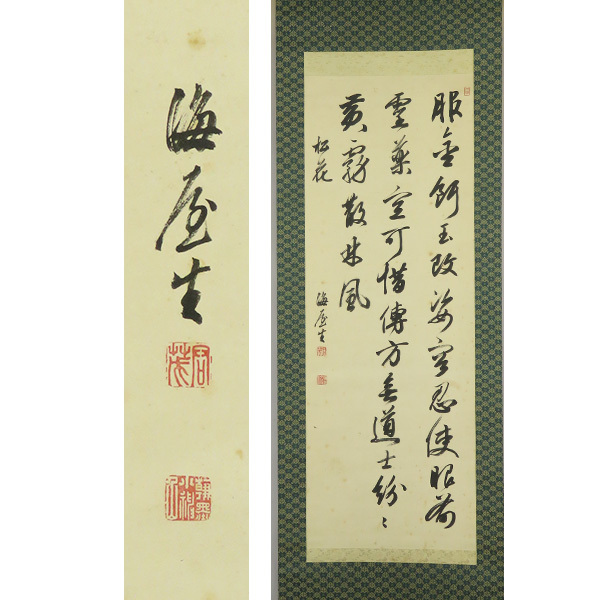 服金餌玉改姿容忍使眼前
靈藥空可惜傳方無道士紛〻
黃霧散林風
松花
海屋生
海屋生